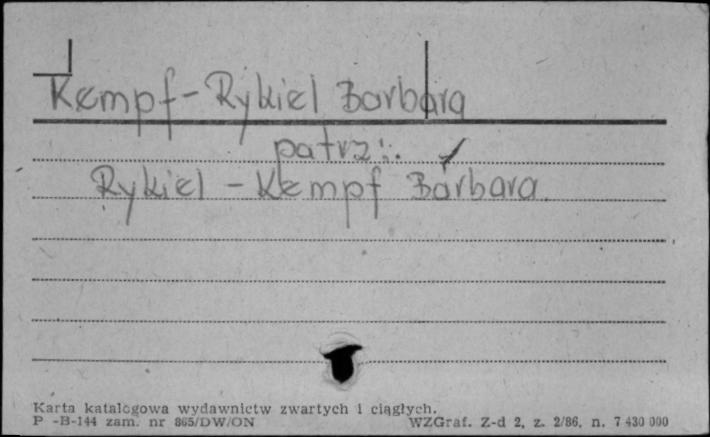 Kempf-Rykiel Barbara
patrz:
Rykiel - Kempf Barbara
Karta katalogowa wydawnictw zwartych i ciągłych.
P -B-144 zam. nr 865/DW/ON WZGraf. Z-d 2, z. 2/86, n. 7 430 000